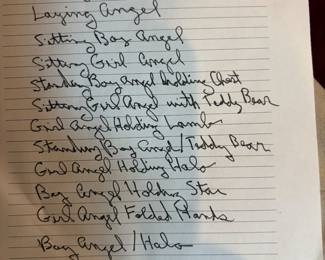 Laying Angel
Sitting Boy Angel
Sitting Girl Angel
Standing Boy Angel holding Chest
Sitting Girl Angel with Teddy Bear
Girl Angel Holding Lamb
Standing Boy Angel/Teddy Bear
Girl Angel Holding Halo
Boy Angel Holding Star
Girl Angel Folded Hands
Boy Angel/Halo